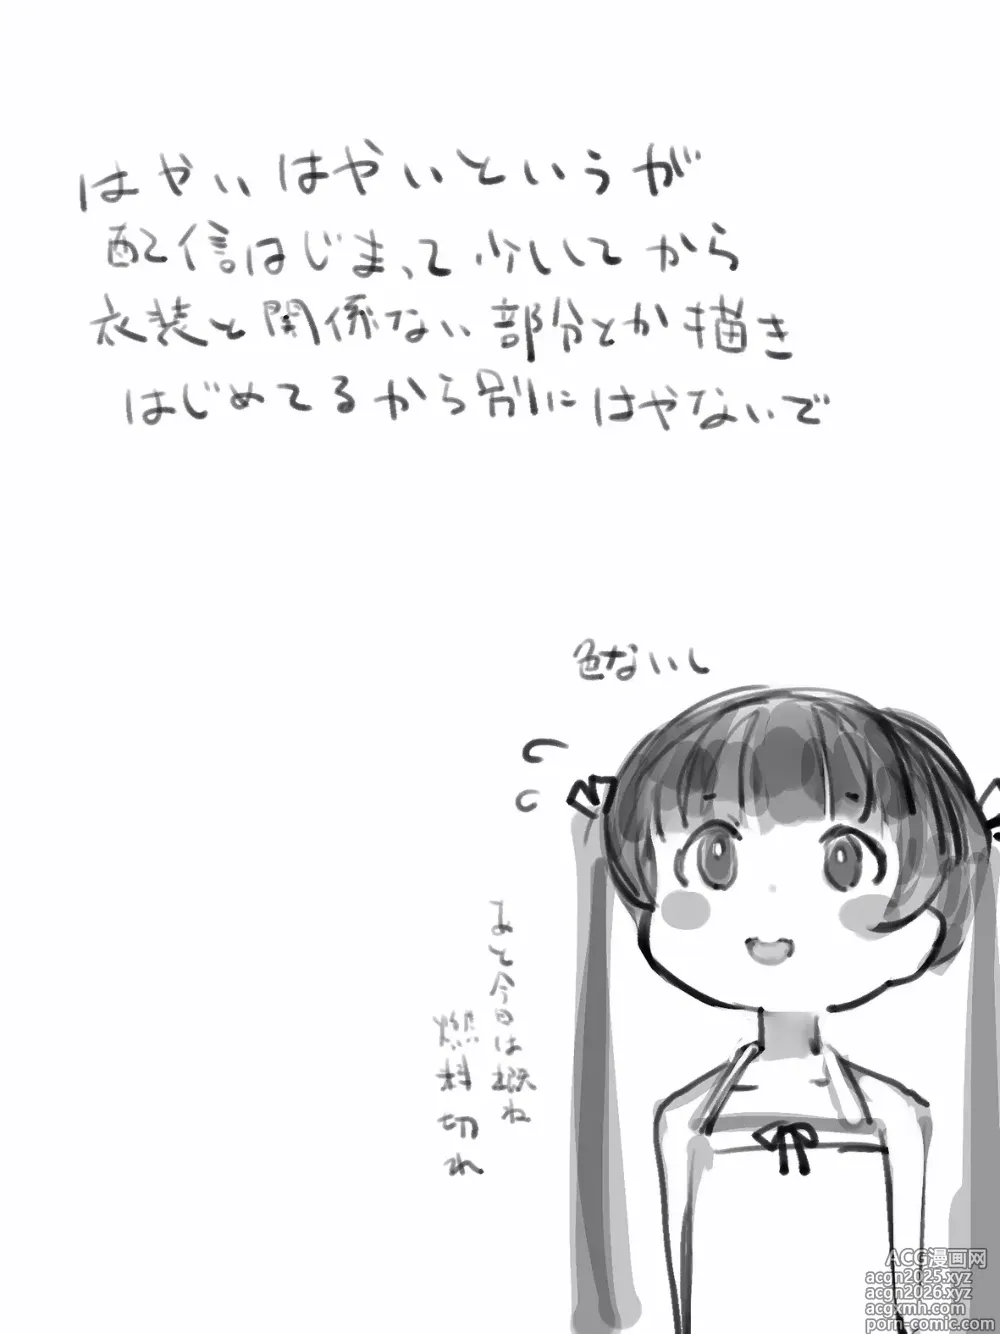 はやいはやいというが
配信はじまって少ししてから
衣装と関係ない部分とか描き
はじめてるから別にはやないで
色ないし
あと今日は概ね
燃料切れ
ACG漫画网
acgn2025.xyz
acgn2026.xyz
acgxmh.com
porn-comic.com